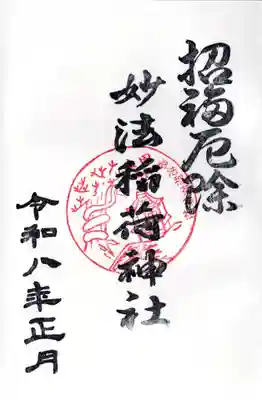 招福厄除
妙法稲荷神社
令和八年正月